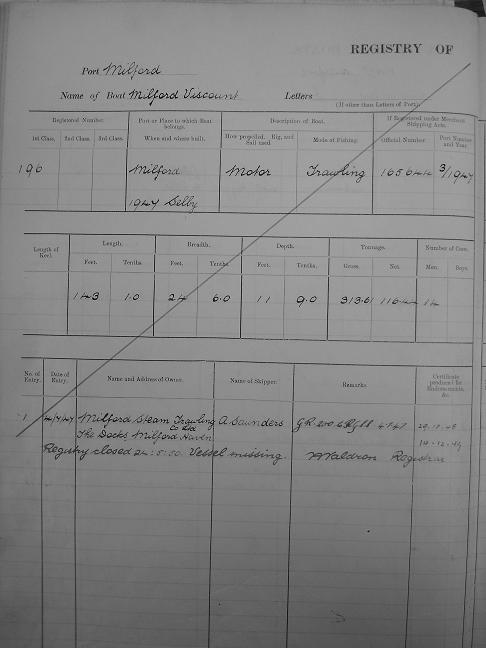 REGISTRY OF
Port Milford
Name of Boat Milford Viscount Letters
(If other than Letters of Port.)
Registered Number. Port or Place to which Boat belongs. Description of Boat. If Registered under Merchant Shipping Acts.
1st Class. 2nd Class. 3rd Class. When and where built. How propelled. Rig, and Sail used Mode of Fishing. Official Number. Port Number and Year.
196 Milford Motor Trawling 165644 3/1947
1947 Selby
Length of Keel. Length. Breadth. Depth. Tonnage. Number of Crew.
Feet. Tenths. Feet. Tenths. Feet. Tenths. Gross. Net. Men. Boys.
143 1.0 24 6.0 11 9.0 313.61 116.4 14
No. of Entry. Date of Entry. Name and Address of Owner. Name of Skipper. Remarks. Certificate produced for Endorsements, &c.
1 4/7/47 Milford Steam Trawling Co Ltd A Saunders GR 4.7.47 29.12.48
The Docks Milford Haven 14.12.49
Registry closed 24.5.50 Vessel missing. Waldron Registrar